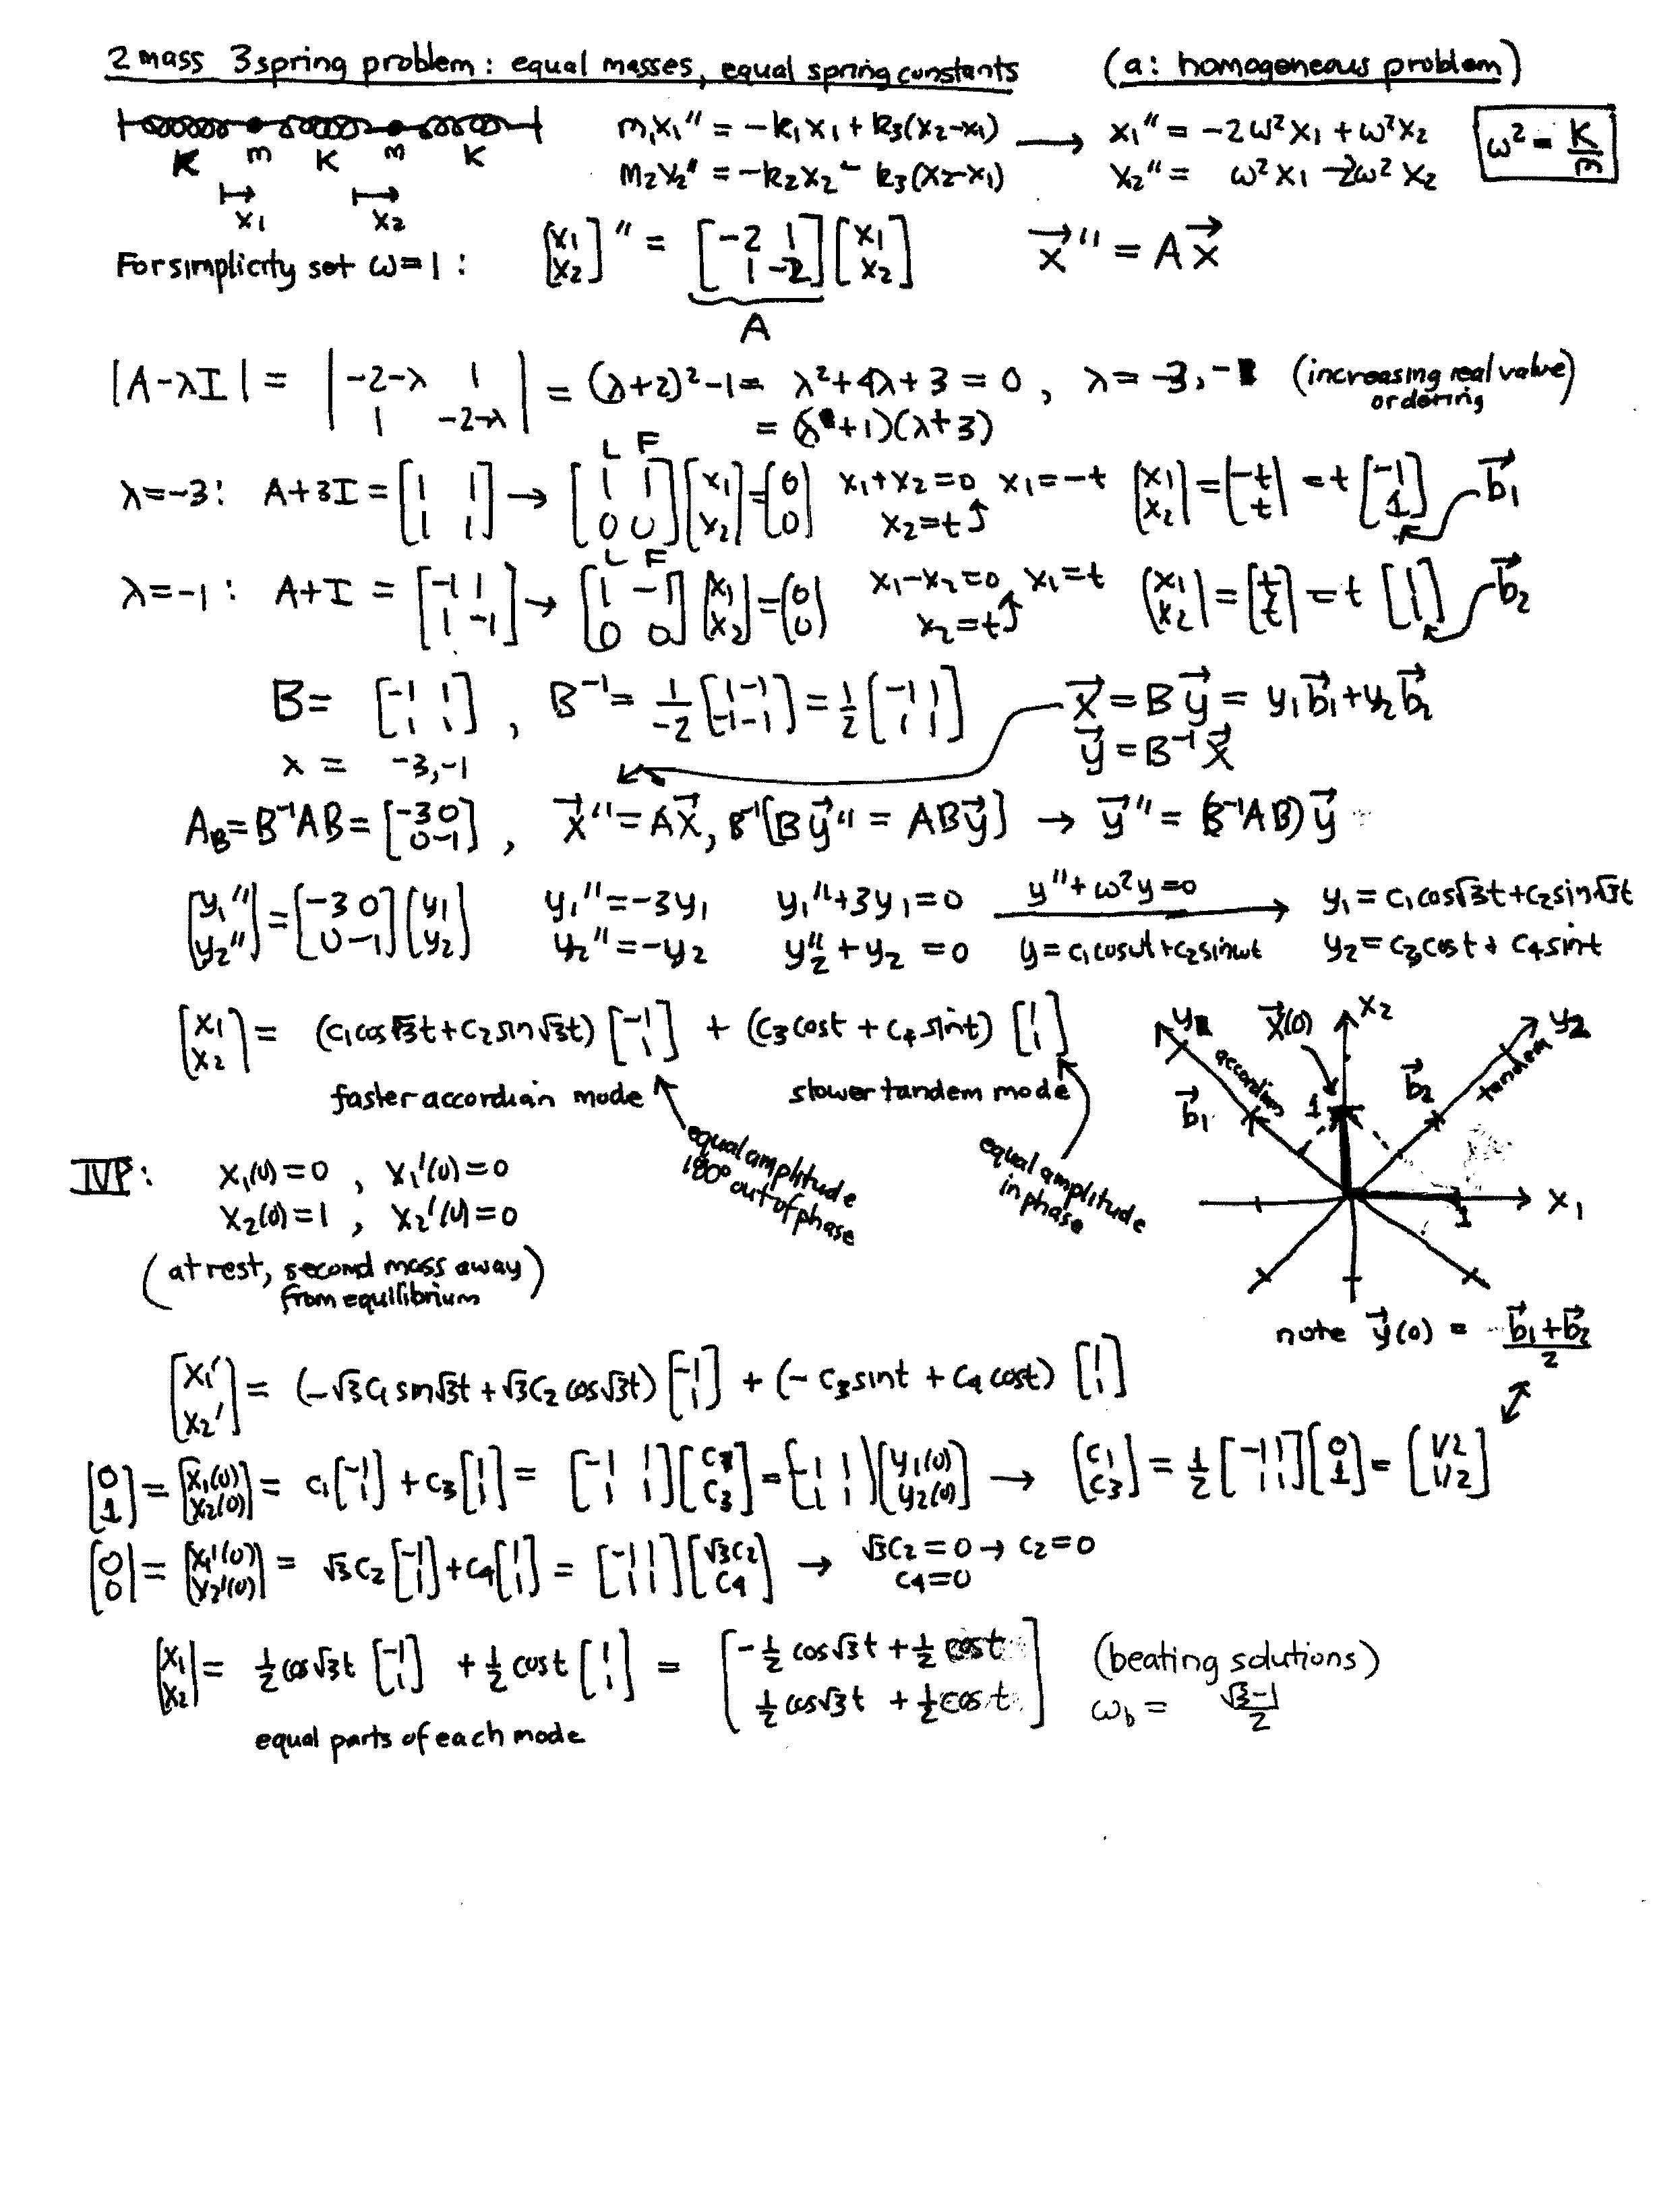 2 mass 3 spring problem: equal masses, equal spring constants (a: homogeneous problem)
K m K m K
x₁ x₂
m₁x₁'' = -k₁x₁ + k₃(x₂-x₁) → x₁'' = -2ω²x₁ + ω²x₂ ω² = K/m
m₂x₂'' = -k₂x₂ - k₃(x₂-x₁) x₂'' = ω²x₁ - 2ω²x₂
For simplicity set ω=1: [x₁ x₂]'' = [-2 1; 1 -2] [x₁ x₂] x⃗'' = Ax⃗
A
|A-λI| = |-2-λ 1; 1 -2-λ| = (λ+2)²-1 = λ²+4λ+3 = 0, λ = -3, -1 (increasing real value ordering)
= (λ+1)(λ+3)
L F
λ=-3: A+3I = [1 1; 1 1] → [1 1; 0 0] [x₁; x₂] = [0; 0] x₁+x₂=0 x₁=-t [x₁; x₂] = [-t; t] = t [-1; 1] b⃗₁
x₂=t
L F
λ=-1: A+I = [-1 1; 1 -1] → [1 -1; 0 0] [x₁; x₂] = [0; 0] x₁-x₂=0 x₁=t [x₁; x₂] = [t; t] = t [1; 1] b⃗₂
x₂=t
B = [-1 1; 1 1], B⁻¹ = 1/-2 [1 -1; -1 -1] = 1/2 [-1 1; 1 1] x⃗ = By⃗ = y₁b⃗₁+y₂b⃗₂
λ = -3,-1 y⃗ = B⁻¹x⃗
A_B = B⁻¹AB = [-3 0; 0 -1], x⃗'' = Ax⃗, B⁻¹[By⃗'' = ABy⃗] → y⃗'' = (B⁻¹AB)y⃗
[y₁''; y₂''] = [-3 0; 0 -1] [y₁; y₂] y₁''=-3y₁ y₁''+3y₁=0 y''+ω²y=0 → y₁ = c₁cos√3t+c₂sin√3t
y₂''=-y₂ y₂''+y₂=0 y=c₁cosωt+c₂sinωt y₂=c₃cost+c₄sint
[x₁; x₂] = (c₁cos√3t+c₂sin√3t) [-1; 1] + (c₃cost+c₄sint) [1; 1]
faster accordian mode slower tandem mode
equal amplitude 180° out of phase
equal amplitude in phase
y₁ accordian x⃗(0) x₂ y₂ tandem
b⃗₁ 1 b⃗₂
1 x₁
note y⃗(0) = (b⃗₁+b⃗₂)/2
IVP: x₁(0)=0, x₁'(0)=0
x₂(0)=1, x₂'(0)=0
(at rest, second mass away from equilibrium)
[x₁'; x₂'] = (-√3c₁sin√3t+√3c₂cos√3t) [-1; 1] + (-c₃sint+c₄cost) [1; 1]
[0; 1] = [x₁(0); x₂(0)] = c₁[-1; 1] + c₃[1; 1] = [-1 1; 1 1] [c₁; c₃] = [-1 1; 1 1] [y₁(0); y₂(0)] → [c₁; c₃] = 1/2 [-1 1; 1 1] [0; 1] = [1/2; 1/2]
[0; 0] = [x₁'(0); x₂'(0)] = √3c₂[-1; 1] + c₄[1; 1] = [-1 1; 1 1] [√3c₂; c₄] → √3c₂=0 → c₂=0
c₄=0
[x₁; x₂] = 1/2 cos√3t [-1; 1] + 1/2 cost [1; 1] = [-1/2 cos√3t + 1/2 cost; 1/2 cos√3t + 1/2 cost] (beating solutions)
ω_b = (√3-1)/2
equal parts of each mode